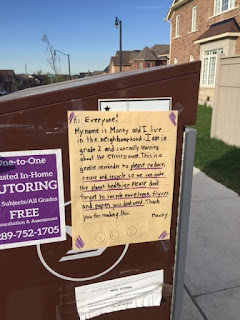 Hi Everyone!
My name is Manny and I live
in the neighbourhood. I am in
grade 2 and currently learning
about the environment. This is a
gentle reminder to please reduce,
reuse and recycle so we can make
the planet healthier. Please don't
forget to recycle envelopes, flyers
and papers you don't need. Thank
you for reading this.
Manny
One-to-One
usted In-Home
UTORING
Subjects/All Grades
FREE
onsultation & Assessment
289-752-1705